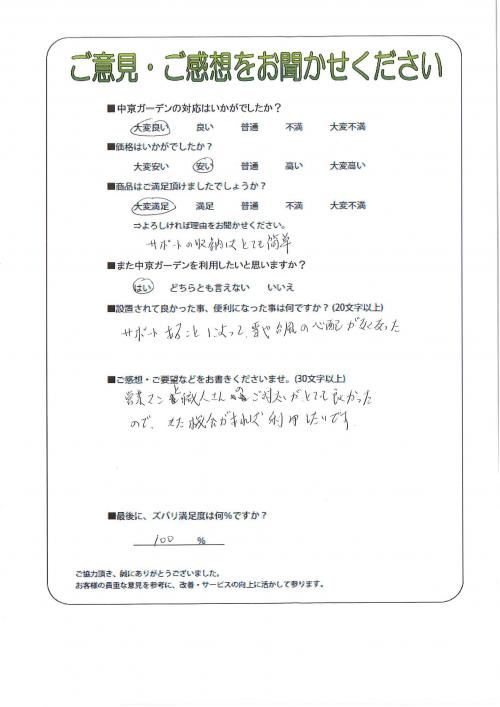 ご意見・ご感想をお聞かせください
■中京ガーデンの対応はいかがでしたか？
大変良い 良い 普通 不満 大変不満
■価格はいかがでしたか？
大変安い 安い 普通 高い 大変高い
■商品はご満足頂けましたでしょうか？
大変満足 満足 普通 不満 大変不満
⇒よろしければ理由をお聞かせください。
サポートの収納はとても簡単
■また中京ガーデンを利用したいと思いますか？
はい どちらとも言えない いいえ
■設置されて良かった事、便利になった事は何ですか？(20文字以上)
サポートあることによって、雪や台風の心配がなくなった
■ご感想・ご要望などをお書きくださいませ。(30文字以上)
営業マンと職人さんのご対応がとても良かった
ので、また機会があれば利用したいです
■最後に、ズバリ満足度は何％ですか？
100 %
ご協力頂き、誠にありがとうございました。
お客様の貴重な意見を参考に、改善・サービスの向上に活かして参ります。